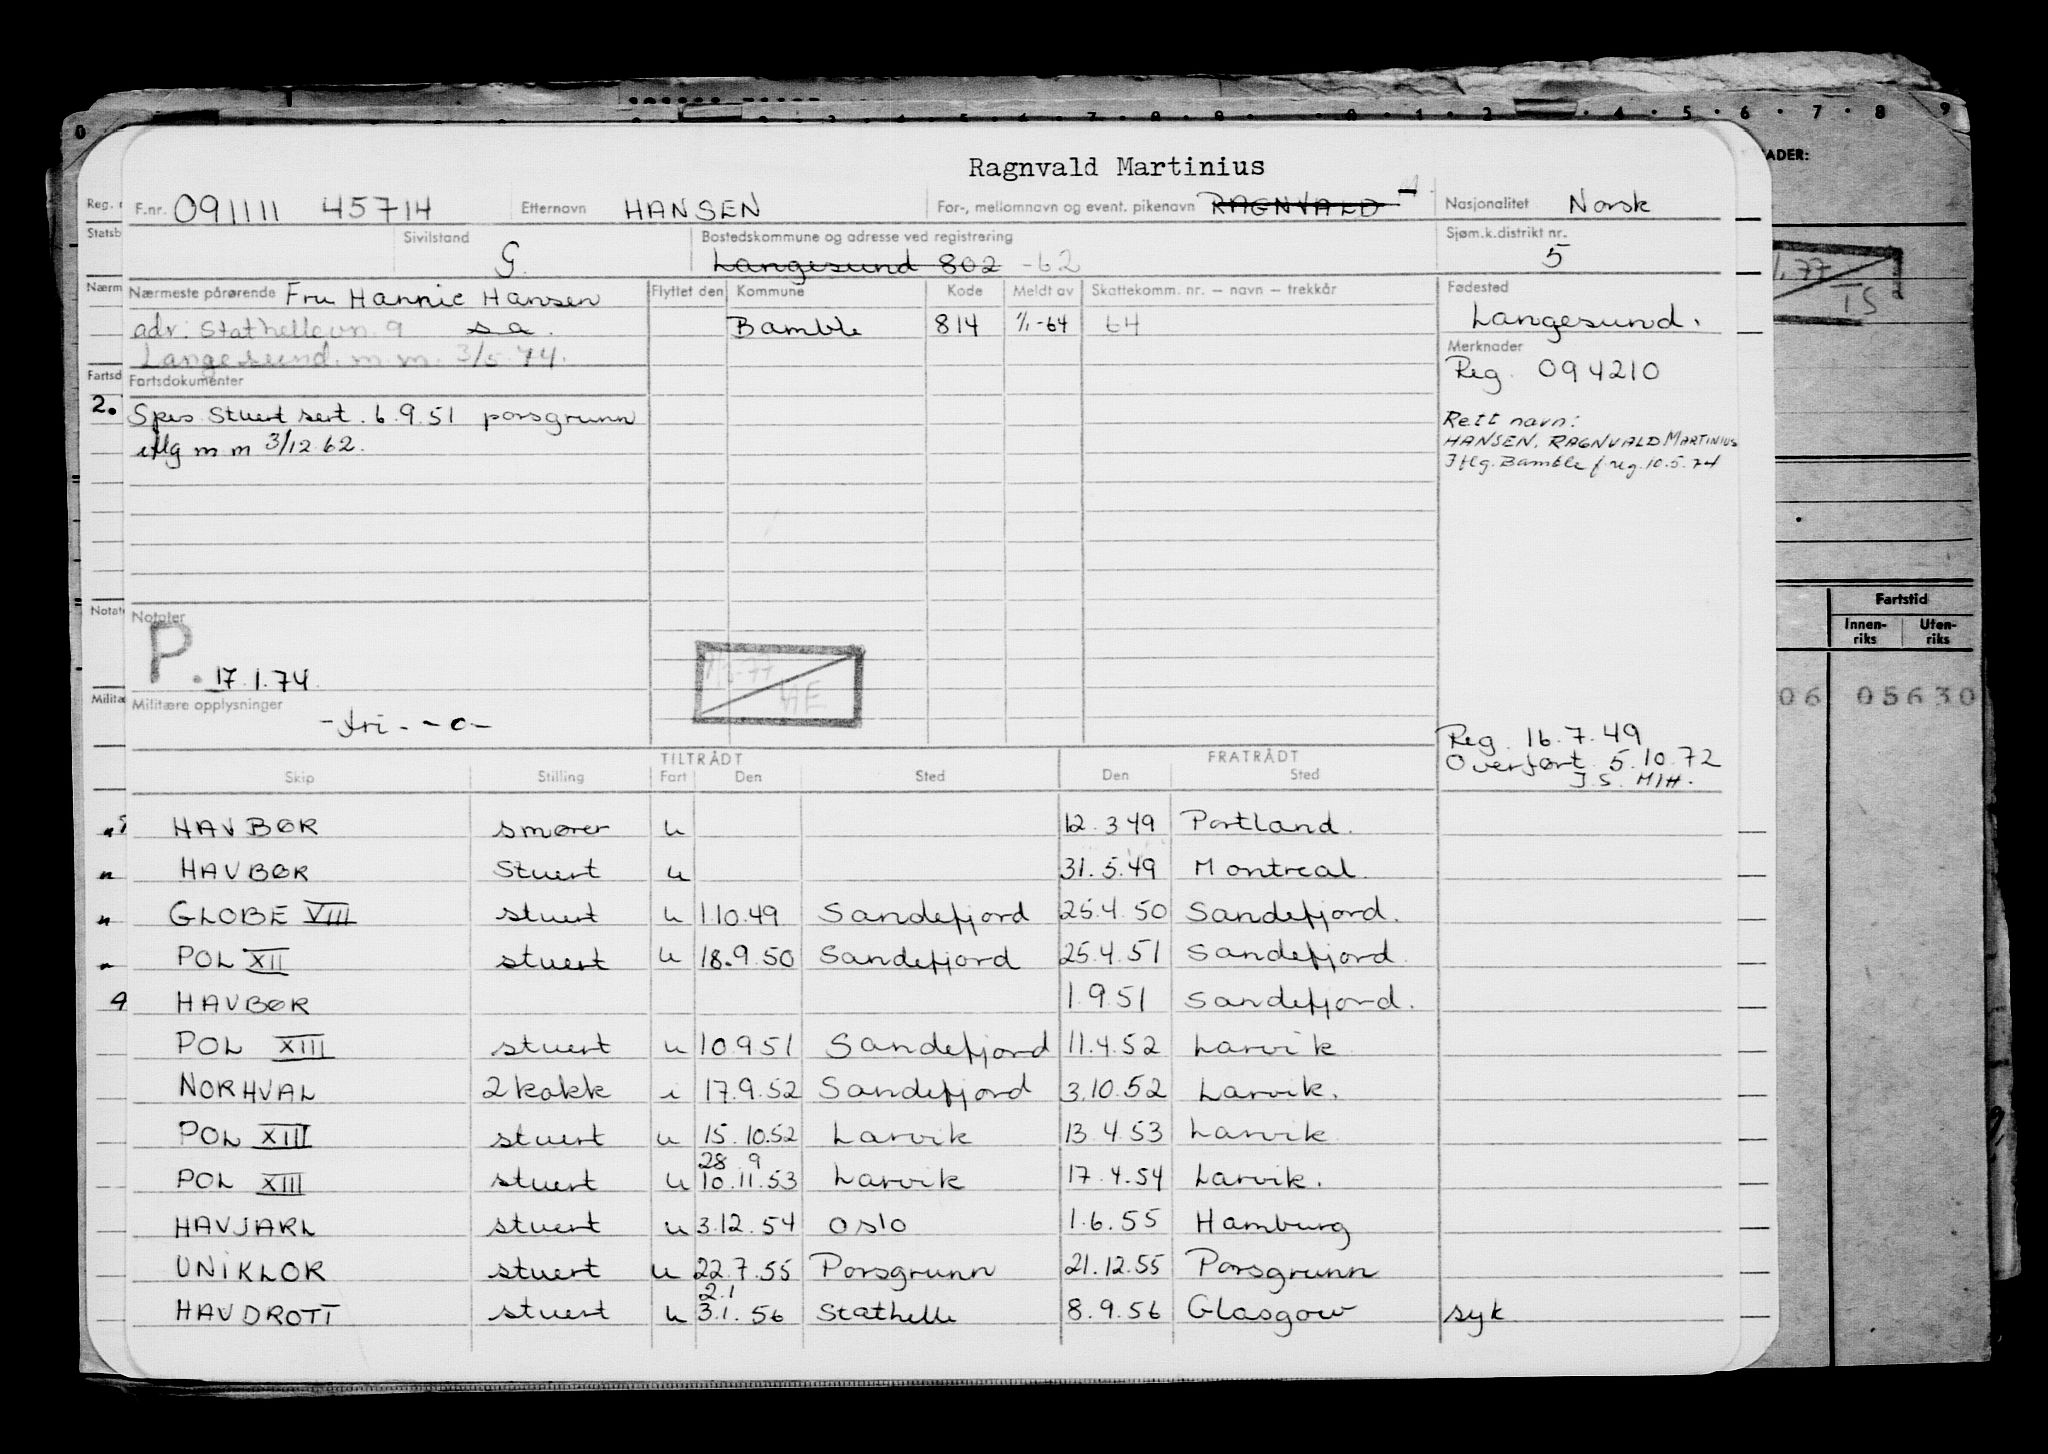 0 7 8 9 0 1 2 4 5 6 7 8 9
ADER:
Ragnvald Martinius
Reg. F.nr. 091111 45714 Etternavn HANSEN For-, mellomnavn og event. pikenavn RAGNVALD Nasjonalitet Norsk
Statsb Sivilstand G. Bostedskommune og adresse ved registrering Langesund 802 -62 Sjøm.k.distrikt nr. 5
Nærm Nærmeste pårørende Fru Hannie Hansen Flyttet den Kommune Kode Meldt av Skattekomm. nr. – navn – trekkår Fødested
adr. Stathellevn. 9 s a. Bamble 814 1/1-64 64 Langesund.
Langesund. m.m. 3/5.74. Merknader
Fartsd Fartsdokumenter Reg. 094210
2. Spes. Stuert sert. 6.9.51 porsgrunn Rett navn:
iflg m m 3/12.62. HANSEN, RAGNVALD MARTINIUS
Iflg. Bamble f.reg. 10.5.74
1.77
TS
Fartstid
Innen-riks Uten-riks
06 05630
Notat Notater
P. 17.1.74.
Militæ Militære opplysninger
-fri- -o-
Reg. 16.7.49
Overført 5.10.72
J.S. MIH.
TILTRÅDT FRATRÅDT
Skip Stilling Fart Den Sted Den Sted
HAVBØR smører u 12.3 49 Portland.
HAVBØR Stuert u 31.5.49 Montreal.
GLOBE VIII stuert u 1.10.49 Sandefjord 25.4.50 Sandefjord.
POL XII stuert u 18.9.50 Sandefjord 25.4.51 Sandefjord.
HAVBØR 1.9.51 Sandefjord.
POL XIII stuert u 10.9.51 Sandefjord 11.4.52 Larvik
NORHVAL 2 kokk i 17.9.52 Sandefjord 3.10.52 Larvik.
POL XIII stuert u 15.10.52 Larvik 13.4.53 Larvik
28.9
POL XIII stuert u 10.11.53 Larvik 17.4.54 Larvik.
HAVJARL stuert u 3.12.54 Oslo 1.6.55 Hamburg
UNIKLOR stuert u 22.7.55 Porsgrunn 21.12.55 Porsgrunn
2.1
HAVDROTT stuert u 3.1.56 Stathelle 8.9.56 Glasgow syk